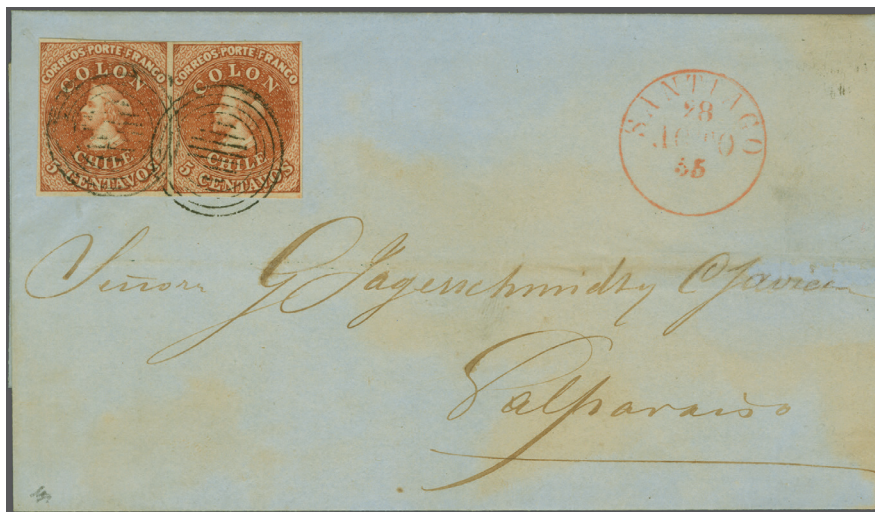 CORREOS PORTE FRANCO
COLON
CHILE
5 CENTAVOS
CORREOS PORTE FRANCO
COLON
CHILE
5 CENTAVOS
SANTIAGO
28
AGTO
55
Señores G Jagerschmidt y
Valparaiso